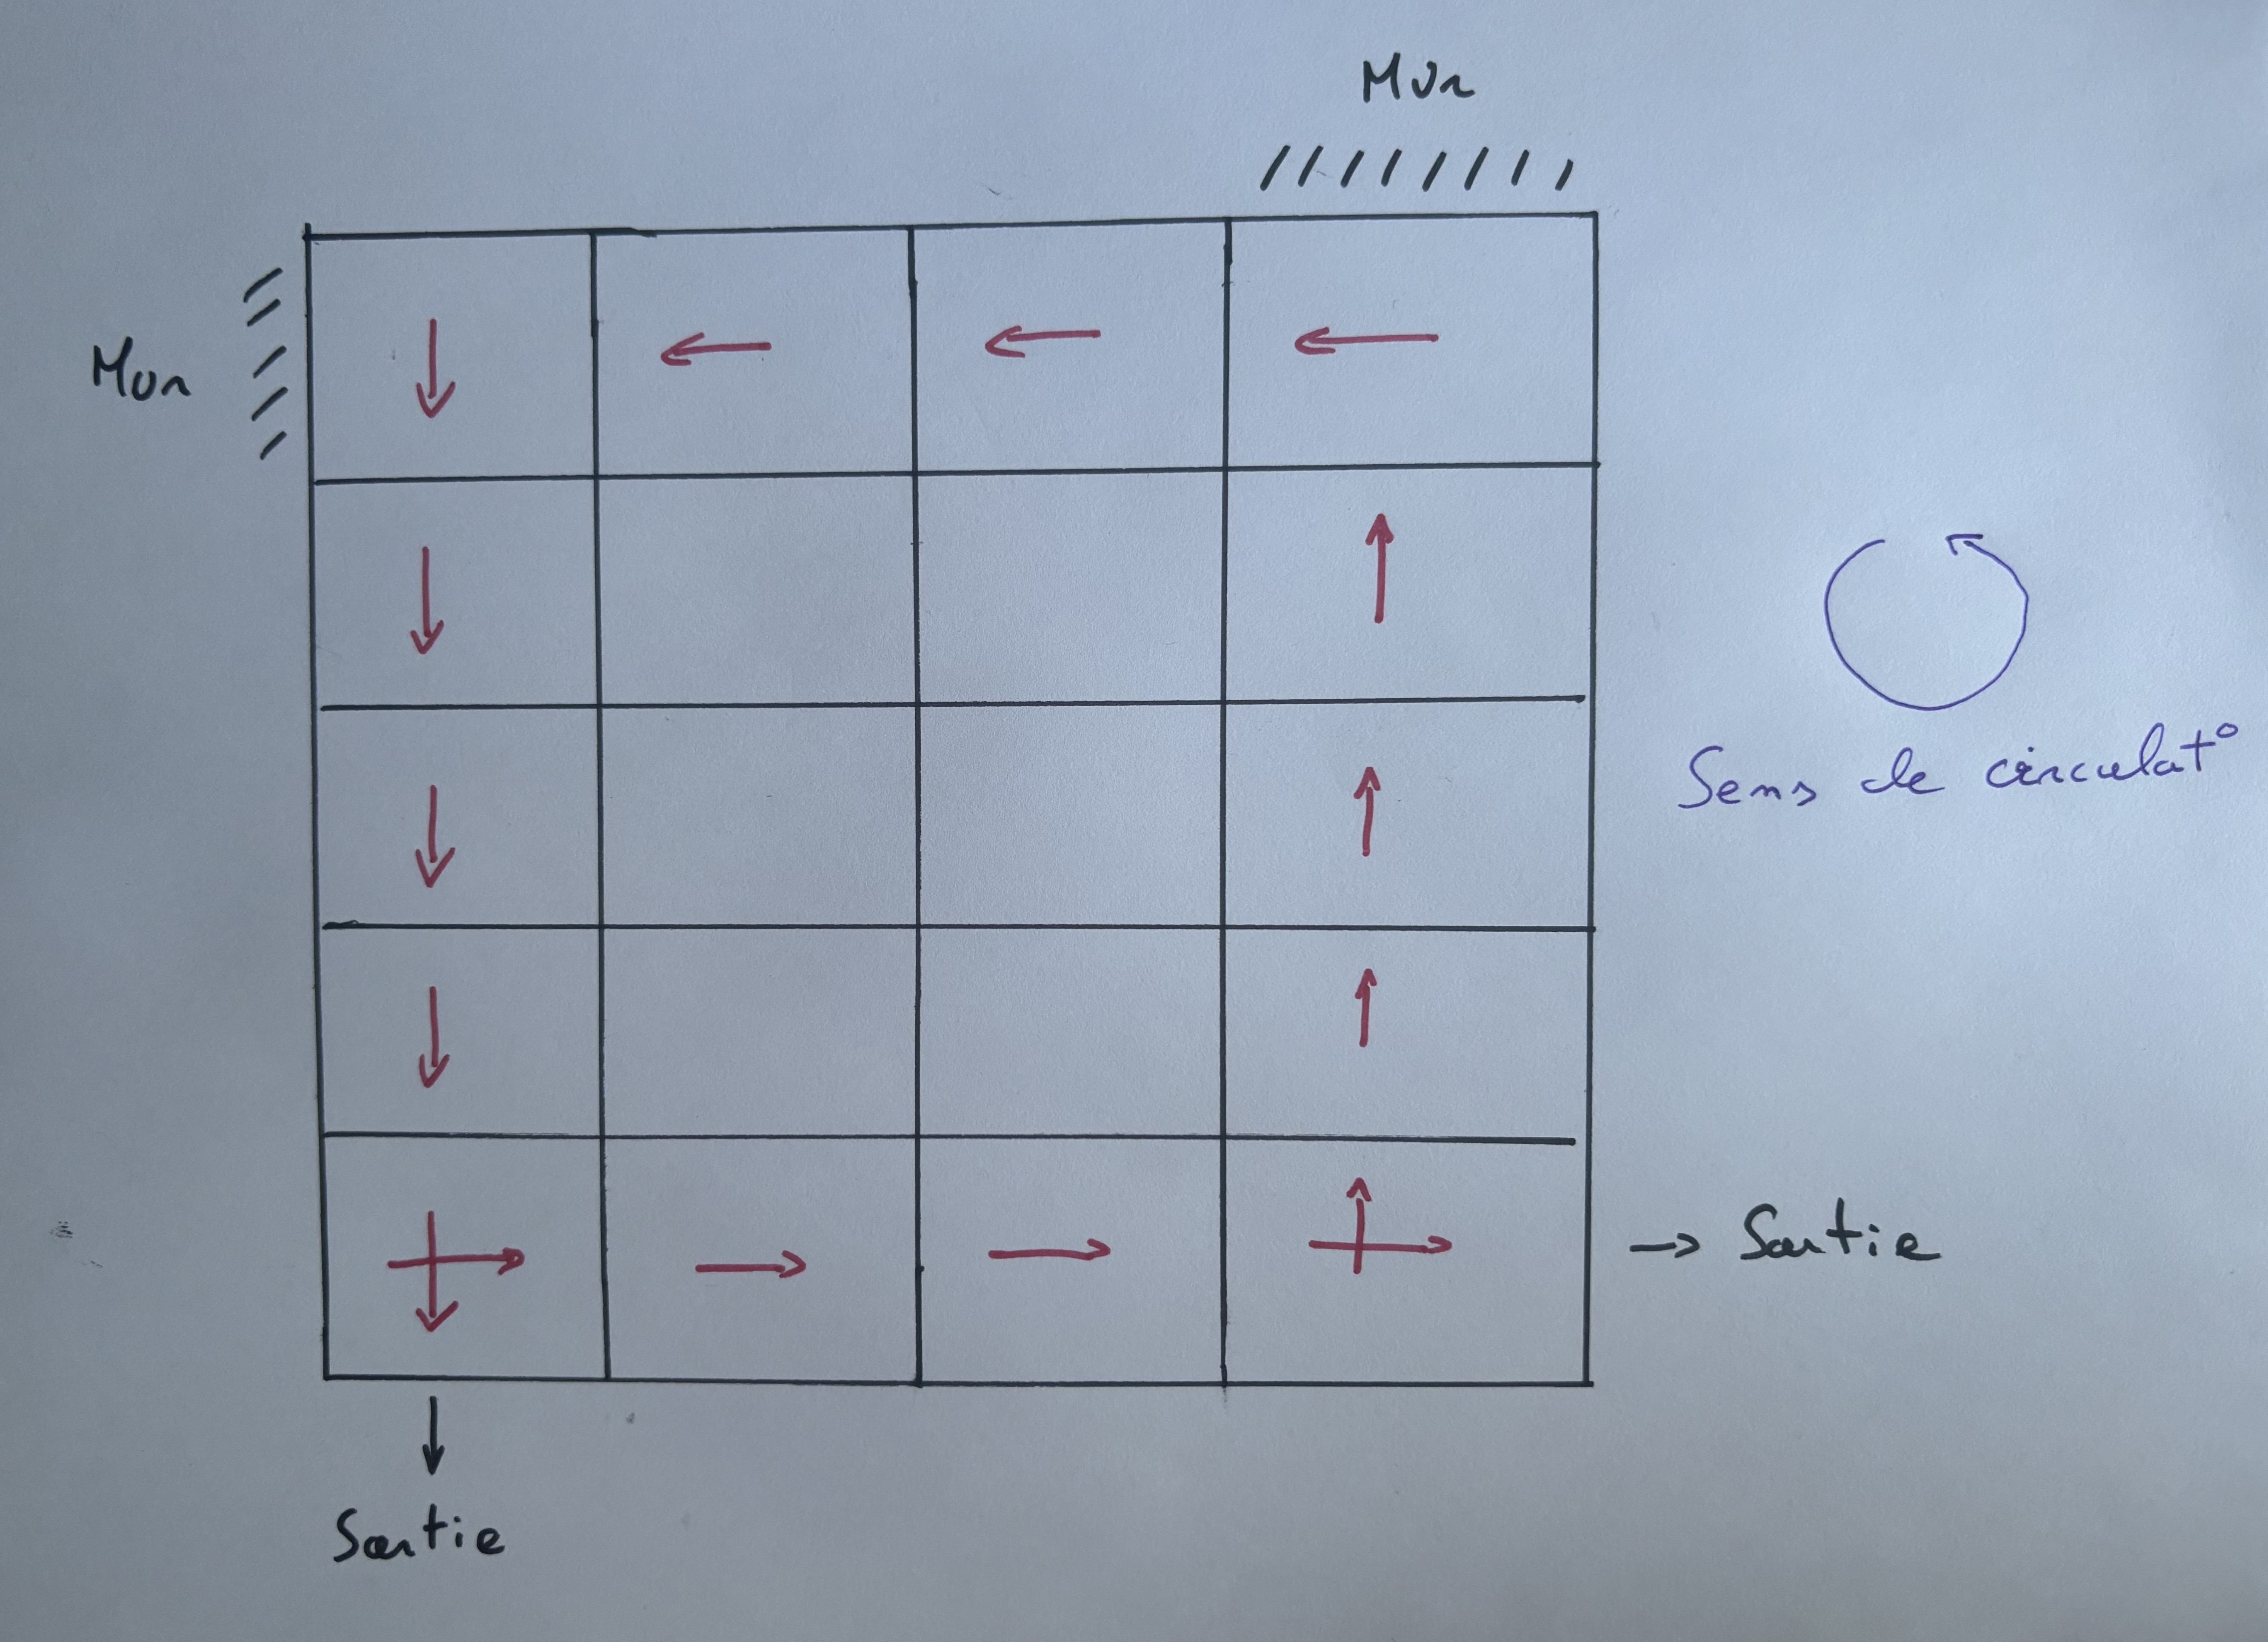 Mur
Mur
Sens de circulat°
→ Sortie
Sortie